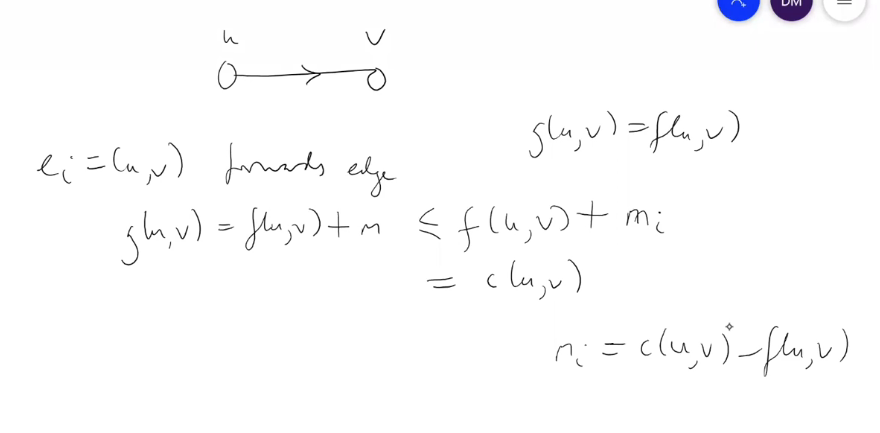 DM
u v
g(u,v) = f(u,v)
e_i = (u,v) forwards edge
g(u,v) = f(u,v) + m ≤ f(u,v) + m_i
= c(u,v)
m_i = c(u,v) - f(u,v)